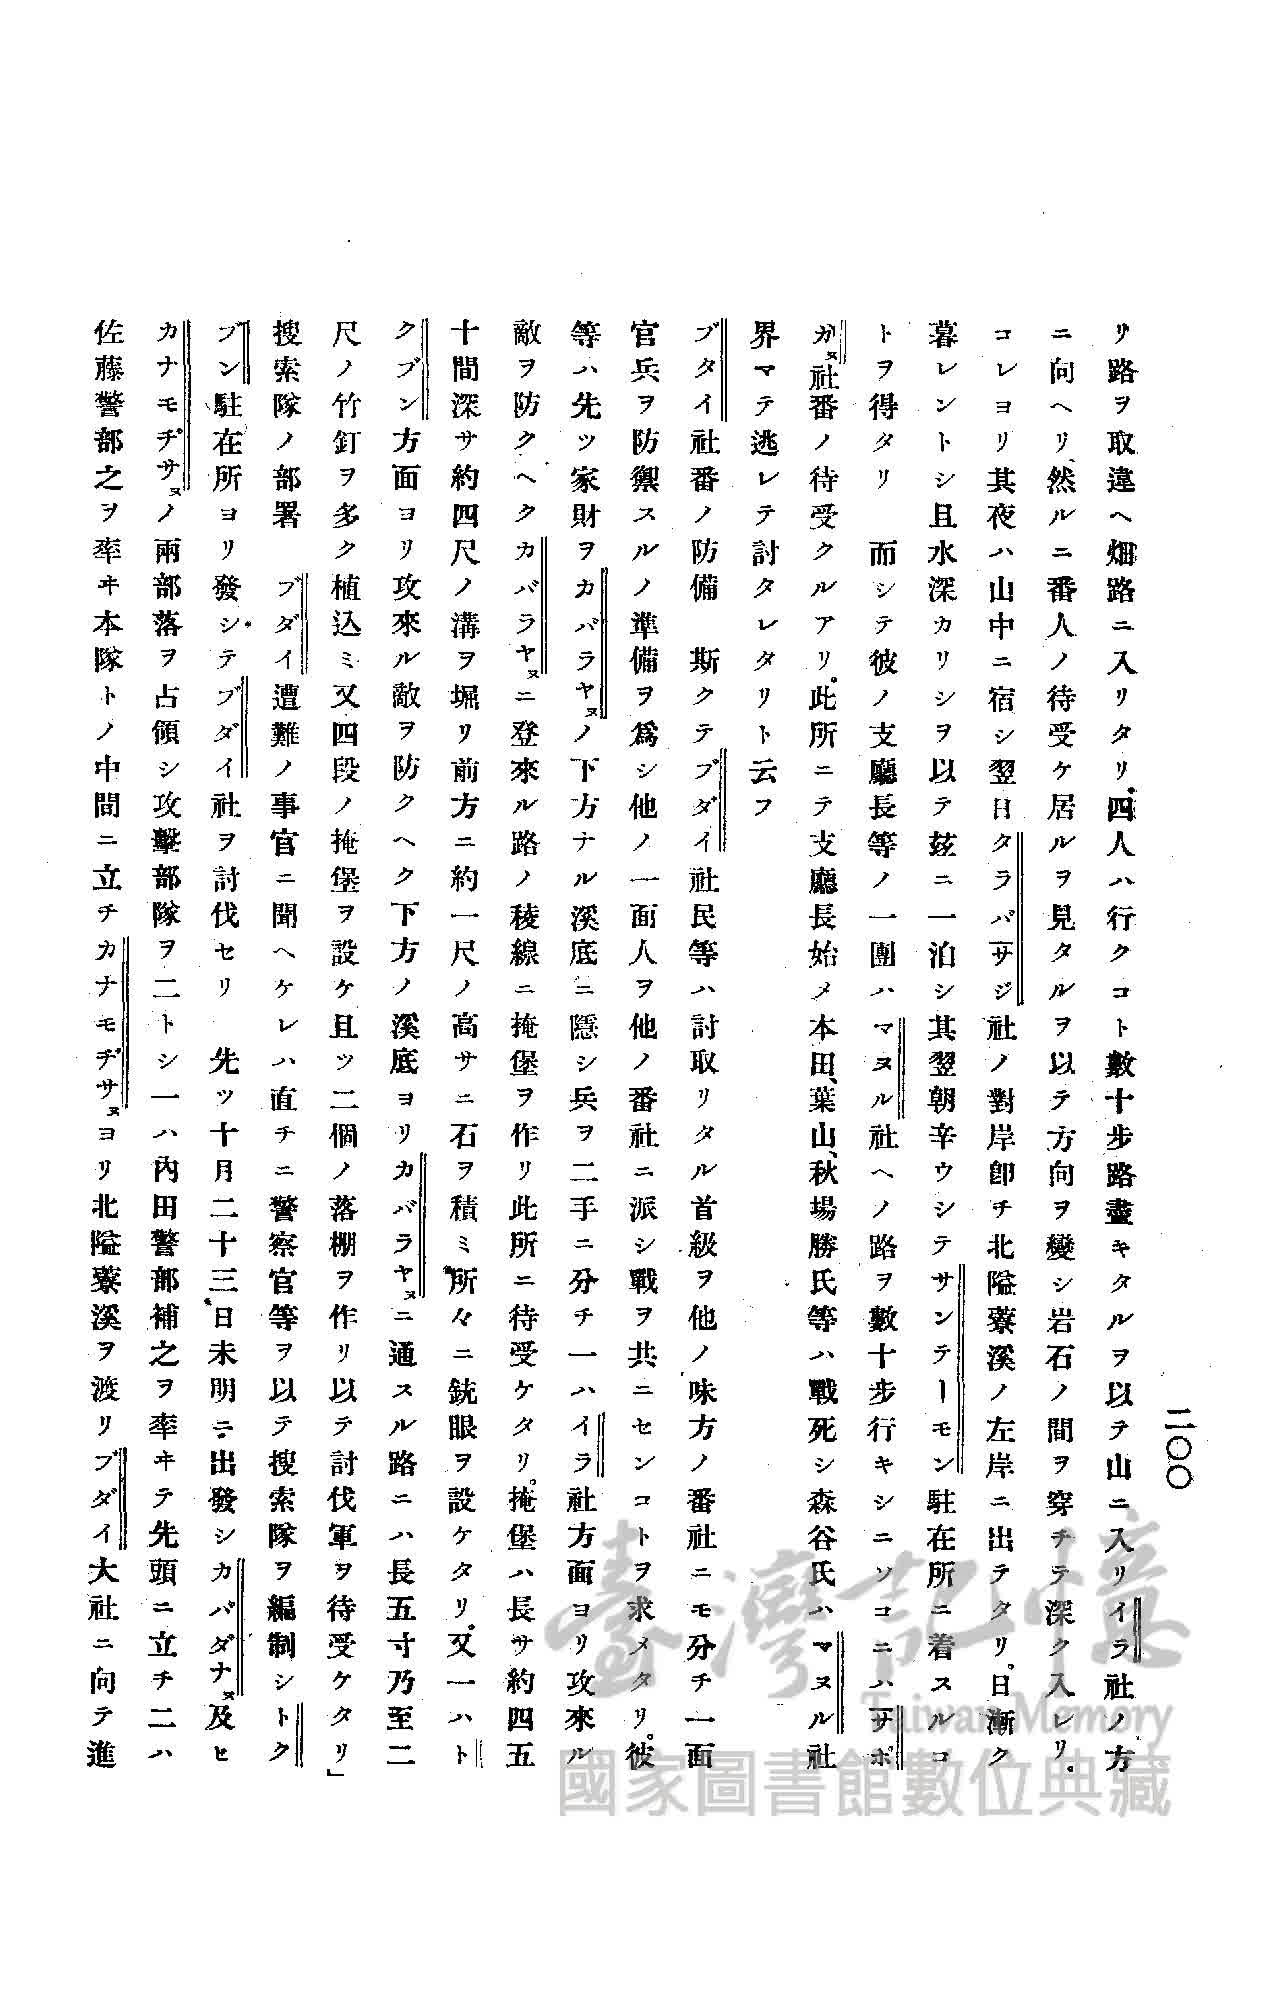 二〇〇
リ路ヲ取違ヘ畑路ニ入リタリ。四人ハ行クコト數十步路盡キタルヲ以テ山ニ入リイラ社ノ方
ニ向ヘリ、然ルニ番人ノ待受ケ居ルヲ見タルヲ以テ方向ヲ變シ岩石ノ間ヲ穿チテ深ク入レリ。
コレヨリ其夜ハ山中ニ宿シ翌日タラバサジ社ノ對岸卽チ北隘藔溪ノ左岸ニ出テタリ。日漸ク
暮レントシ且水深カリシヲ以テ茲ニ一泊シ其翌朝辛ウシテサンテーモン駐在所ニ着スルコ
トヲ得タリ　而シテ彼ノ支廳長等ノ一團ハマヌル社ヘノ路ヲ數十步行キシニソコニハサポ
ガヌ社番ノ待受クルアリ。此所ニテ支廳長始メ本田、葉山、秋場勝氏等ハ戰死シ森谷氏ハマヌル社
界マテ逃レテ討タレタリト云フ
ブタイ社番ノ防備　斯クテブダイ社民等ハ討取リタル首級ヲ他ノ味方ノ番社ニモ分チ一面
官兵ヲ防禦スルノ準備ヲ爲シ他ノ一面人ヲ他ノ番社ニ派シ戰ヲ共ニセンコトヲ求メタリ。彼
等ハ先ツ家財ヲカバラヤヌノ下方ナル溪底ニ隱シ兵ヲ二手ニ分チ一ハイラ社方面ヨリ攻來ル
敵ヲ防クヘクカバラヤヌニ登來ル路ノ稜線ニ掩堡ヲ作リ此所ニ待受ケタリ。掩堡ハ長サ約四五
十間深サ約四尺ノ溝ヲ堀リ前方ニ約一尺ノ高サニ石ヲ積ミ所々ニ銃眼ヲ設ケタリ。又一ハト
クブン方面ヨリ攻來ル敵ヲ防クヘク下方ノ溪底ヨリカバラヤヌニ通スル路ニハ長五寸乃至二
尺ノ竹釘ヲ多ク植込ミ又四段ノ掩堡ヲ設ケ且ツ二個ノ落棚ヲ作リ以テ討伐軍ヲ待受ケタリ」
搜索隊ノ部署　ブダイ遭難ノ事官ニ聞ヘケレハ直チニ警察官等ヲ以テ搜索隊ヲ編制シトク
ブン駐在所ヨリ發シテブダイ社ヲ討伐セリ　先ツ十月二十三日未明ニ出發シカバダナヌ及ヒ
カナモヂサヌノ兩部落ヲ占領シ攻擊部隊ヲ二トシ一ハ內田警部補之ヲ率ヰテ先頭ニ立チ二ハ
佐藤警部之ヲ率ヰ本隊トノ中間ニ立チカナモヂサヌヨリ北隘藔溪ヲ渡リブダイ大社ニ向テ進
臺灣記憶
Taiwan Memory
國家圖書館數位典藏